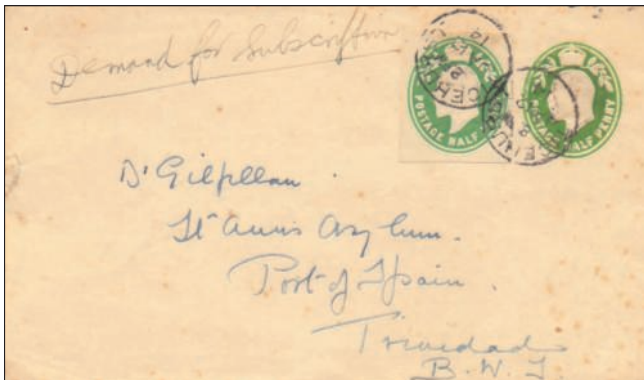 Demand for Subscription
POSTAGE HALF
POSTAGE HALF PENNY
Dr Gilfillan
St Anns Asylum.
Port of Spain.
Trinidad
B.W.I